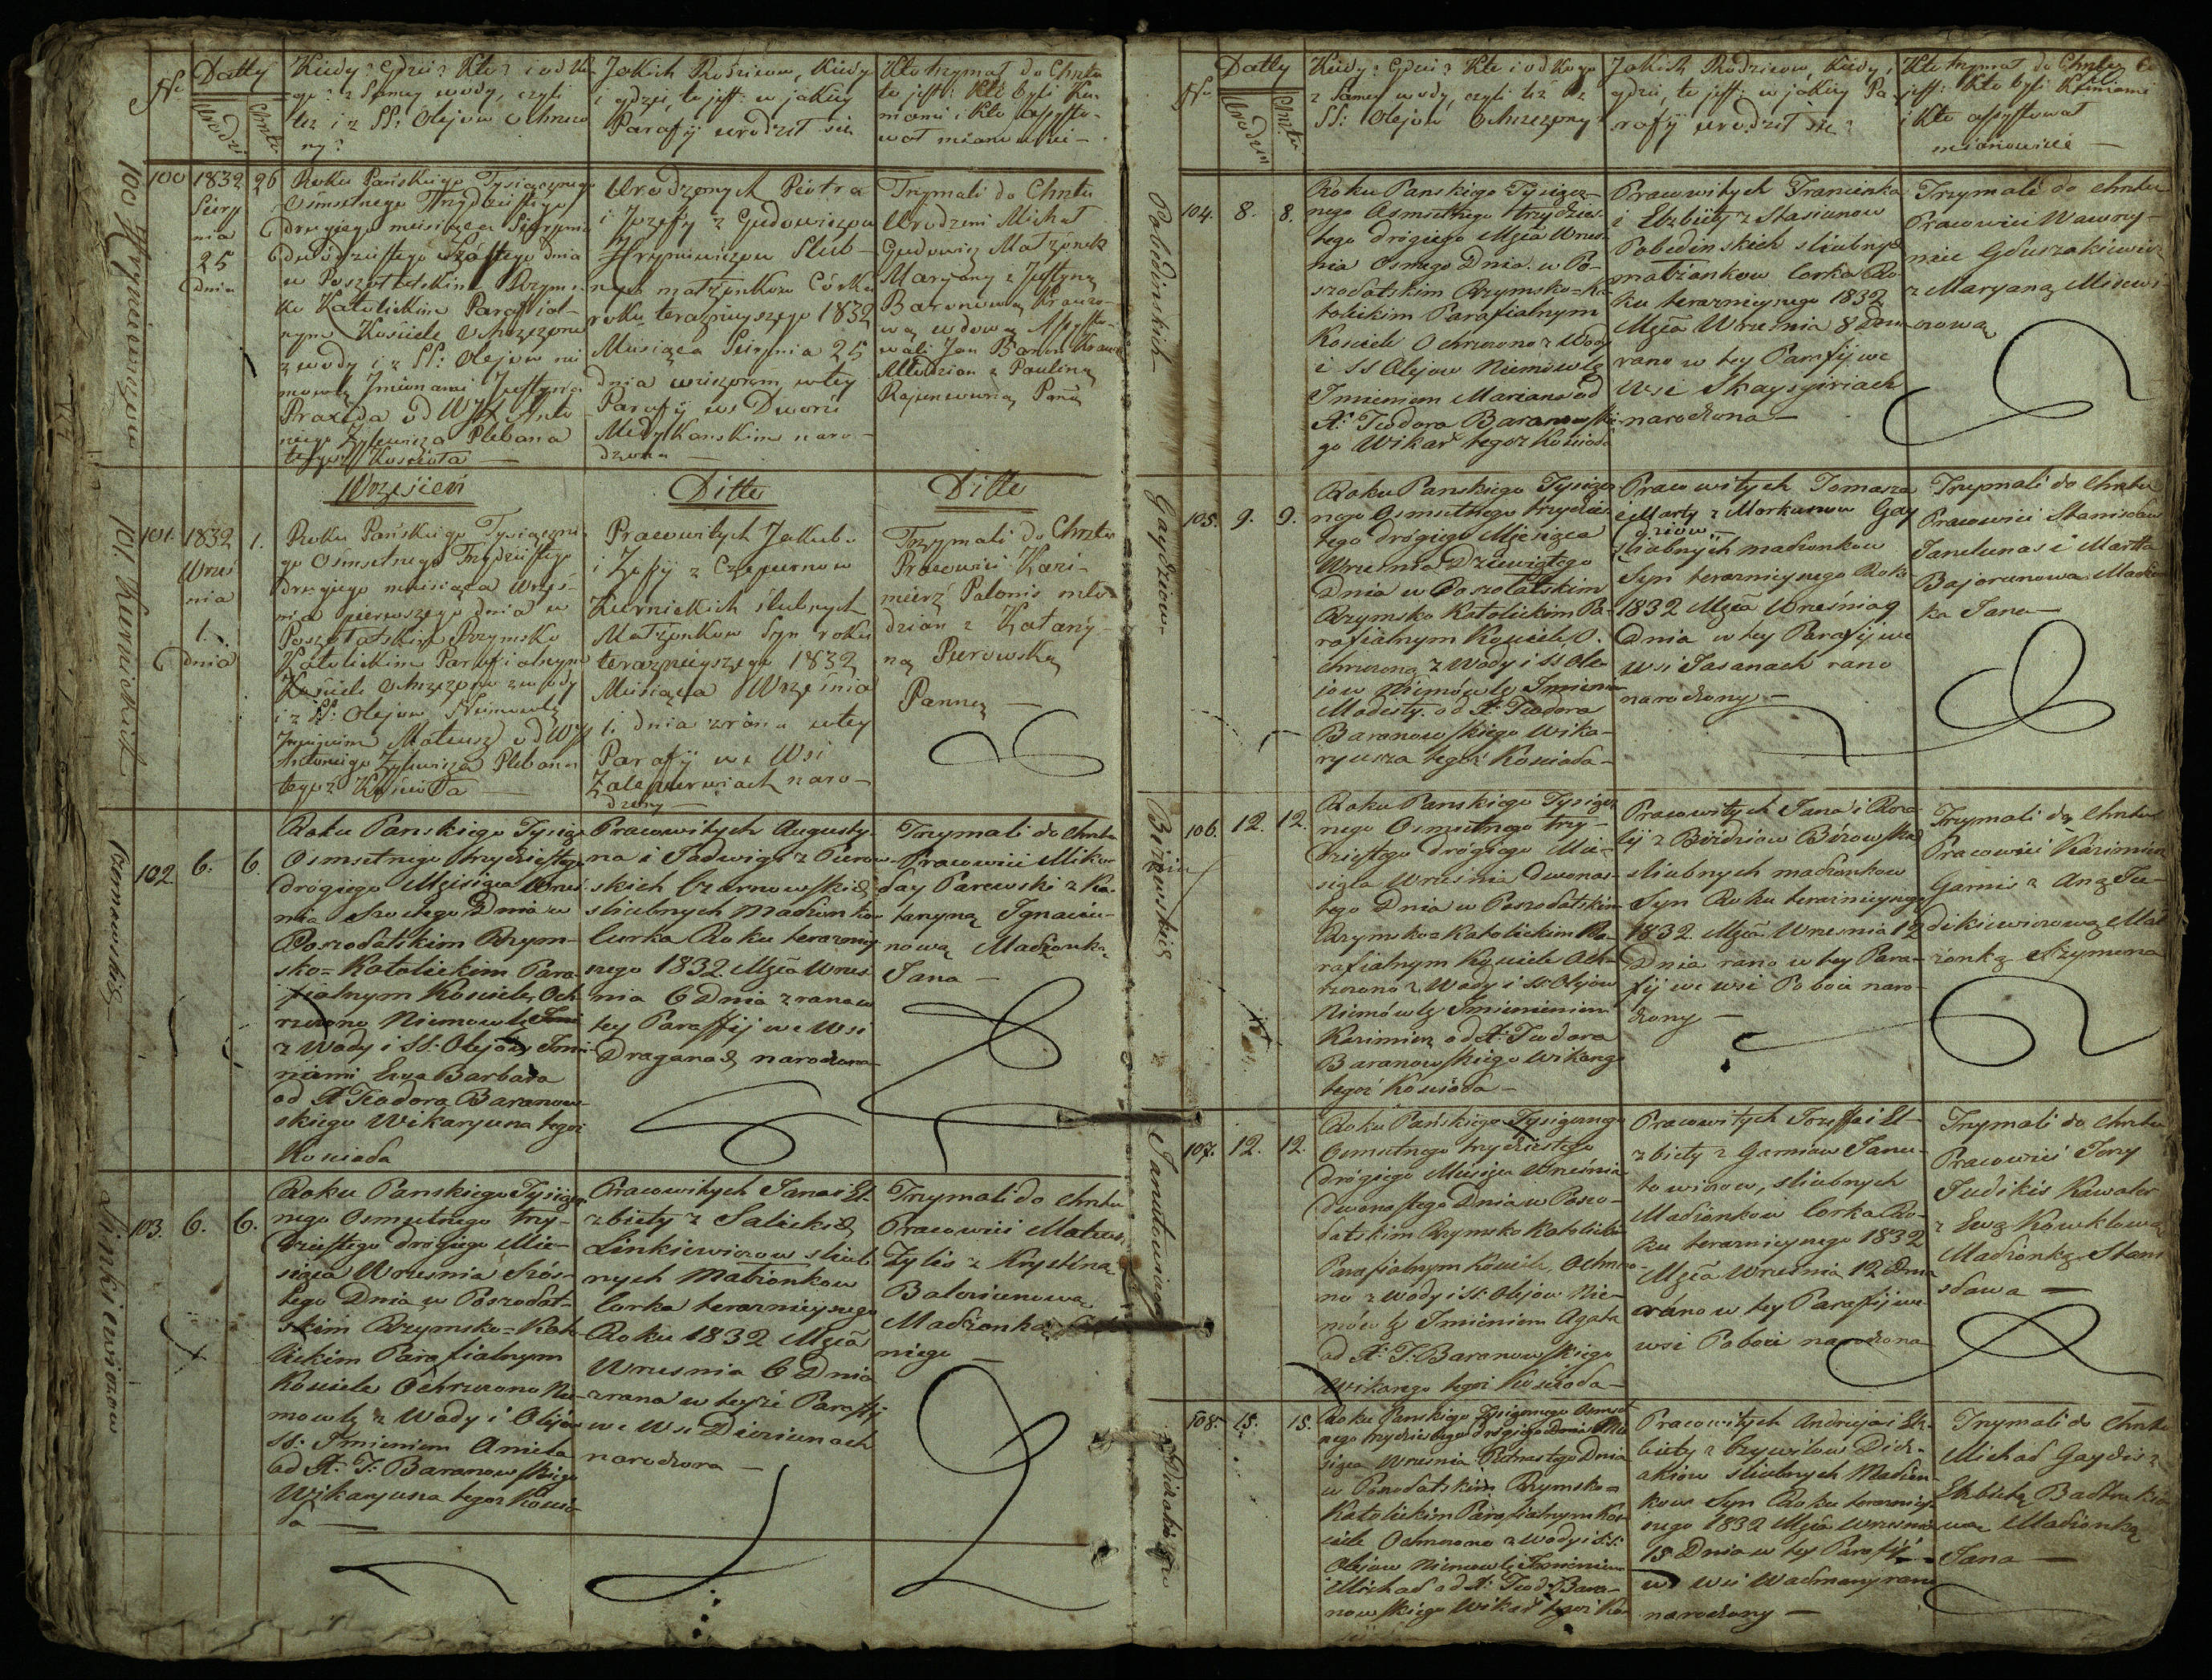 Datty
Urodzin
Chrztu
Kiedy? Gdzie? Kto? i od ko-
go? z Samey wody, czyli
też i z SS: Olejow Ochrzco-
ny?
Jakich Rodzicow, Kiedy
i gdzie, to jest: w jakiey
Parafij urodził się
Kto trzymał do Chrztu
to jest: Kto byli Ku-
mami i Kto Assysto-
wał mianowicie-
100 Hryniewiczow
100
1832
Sierp
nia
25
dnia
26
Roku Pańskiego Tysiącznego
Osmsetnego Trzydziestego
drugiego miesiąca Sierpnia
dwódziestego Szóstego dnia
w Poszołatskim Rzym-
ko Katolickim Parafial-
nym Kościele Ochrzczono
z wody i z SS: Olejow nie
mowlę Imionami Justyna
Praxeda od WJX Anto-
niego Żylewicza Plebana
tegoż Kościoła —
Urodzonych Piotra
i Jozefy z Gudowiczow
Hryniewiczow Slub-
nych małżonkow Córka
roku teraznieyszego 1832
Miesiąca Sierpnia 25
dnia wieczorem w tey
Parafij we Dworze
Medykanskim naro-
dzona —
Trzymali do Chrztu
Urodzeni Michał
Gudowicz Małżonek
Maryany z Justyną
Baronową
wą wdową Assysto-
wali Jan Baron
Młodzian z Pauliną
Panną
Wrzesień
Ditto
Ditto
101. Kurnickich
101.
1832
Wrześ
nia
1.
dnia
1.
Roku Pańskiego Tysiączne-
go Ośmsetnego Trzydziestego
drugiego miesiąca Wrześ-
nia pierwszego dnia w
Poszołatskim Rzymsko
Katolickim Parafialnym
Kościele Ochrzczono z wody
i z SS: Olejow Niemowlę
Imieniem Mateusz od WJX
Antoniego Żylewicza Plebana
tegoż Kościoła —
Pracowitych Jakuba
i Zofij z Czepurnow
Kurnickich ślubnych
Małżonkow Syn roku
teraznieyszego 1832
Miesiąca Września
1. dnia zrana w tey
Parafij we Wsi
Zalepurwiach naro-
dzony —
Trzymali do Chrztu
Pracowici Kazi-
mierz Palonis mło-
dzian z Katarzy-
ną Purowską
Panną —
Czarnowskich
102
6.
6.
Roku Panskiego Tysiącz
Osmsetnego trzydziestego
drógiego Miesiąca Wrześ
nia Szostego Dnia w
Poszołatskim Rzym-
sko=Katolickim Para-
fialnym Kościele Och-
rzczono Niemowlę
z Wody i SS: Olejow Imio-
niami Ewa Barbara
od X Teodora Baranow-
skiego Wikaryusza tegoż
Kościoła
Pracowitych Augusty-
na i Jadwigi z Purow-
skich Czarnowskich
sliubnych Małżonkow
Corka Roku teraznieys
nego 1832 Mżca Wrześ
nia 6 Dnia z rana w
tey Paraffij we Wsi
Draganach narodzona
Trzymali do Chrztu
Pracowici Miko-
łay Parewski z Ka-
tarzyną Ignaciu-
nową Małżonką
Jana —
Linkiewiczow
103.
6.
6.
Roku Panskiego Tysiącz
nego Osmsetnego trzy-
dziestego drógiego Mie-
siąca Wrzesnia Szós-
tego Dnia w Poszołat-
skim Rzymsko=Kato-
lickim Parafialnym
Kościele Ochrzczono Nie-
mowlę z Wody i Olejow
SS: Imieniem Aniela
od X: T: Baranowskiego
Wikaryusza tegoż Kościo-
ła —
Pracowitych Jana i El-
zbiety z Salickich
Linkiewiczow sliub-
nych Małżonkow
Corka teraznieysznego
Roku 1832 Mżca
Wrzesnia 6 Dnia
z rana w teyże Paraffij
we Wsi Dirzianach
narodzona —
Trzymali do Chrztu
Pracowici Mateusz
Żylis z Krystiną
Małżonką
niego —
Datty
Urodzin
Chrztu
Kiedy? Gdzie? Kto i od Kogo
z Samey wody, czyli też z
SS: Olejow Ochrzczony?
Jakich Rodzicow, Kiedy, i
gdzie, to jest: w jakiey Pa-
rafij urodził się?
Kto trzymał do Chrztu to
jest: Kto byli Kumami
i Kto assystował
mianowicie —
Pobedinskich
104.
8.
8.
Roku Panskiego Tysiącz-
nego Osmsetnego trzydzies-
tego drógiego Mżca Wrześ-
nia Osmego Dnia w Po-
szołatskim Rzymsko=Ka-
tolickim Parafialnym
Kościele Ochrzczono z Wody
i SS Olejow Niemowlę
Imieniem Mariana od
X: Teodora Baranowskie-
go Wikar tegoż Kościoła
Pracowitych Franciszka
i Elzbiety z Stasiunow
Pobedinskich sliubnych
małżonkow Corka Ro-
ku teraznieysznego 1832
Mżca Wrzesnia 8 Dnia
rano w tey Parafij we
Wsi Skaysgiriach
narodzona —
Trzymali do Chrztu
Pracowici Wawrzy-
niec
z Maryaną
nową
Gaydziow
105.
9.
9.
Roku Panskiego Tysiącz
nego Osmsetnego trzydzies
tego drógiego Miesiąca
Wrzesnia Dziewiątego
Dnia w Poszołatskim
Rzymsko Katolickim Pa-
rafialnym Kościele O-
chrzczono z Wody i SS Ole-
jow Niemówlę Imieniem
Modesty. od X: Teodora
Baranowskiego Wika-
ryusza tegoż Kościoła —
Pracowitych Tomasza
i Marty z Morkunow Gay
dziow
sliubnych małżonkow
Syn teraznieysznego Roku
1832 Mżca Września 9
Dnia w tey Parafij we
wsi Jasanach rano
narodzony —
Trzymali do Chrztu
Pracowici Stanisław
Janelunas i Marta
Bajorunowa Małżon
ka Jana —
Birowskich
106.
12.
12.
Roku Panskiego Tysiącz
nego Osmsetnego trzy-
dziestego drógiego Mie-
siąca Wrzesnia Dwonas-
tego Dnia w Poszołatskim
Rzymsko=Katolickim Pa-
rafialnym Kościele Och-
rzczono z Wody i SS Olejow
Niemówlę Imieniem
Kazimierz od X: Teodora
Baranowskiego Wikarego
tegoż Kościoła —
Pracowitych Jana i Roza-
lij z Birdziow Birowskich
sliubnych małżonkow
Syn Roku teraznieysznego
1832 Mżca Wrzesnia 12
Dnia rano w tey Para-
fij we wsi Poboie naro-
dzony —
Trzymali do Chrztu
Pracowici Kazimierz
Garnis z Aną Ju-
dikiewiczową Mał
żonką Szymona
Janutowiczow
107.
12.
12.
Roku Pańskiego Tysiącznego
Osmsetnego trzydziestego
drógiego Miesiąca Wrzesnia
Dwonastego Dnia w Poszo-
łatskim Rzymsko Katolickim
Parafialnym Kościele, Ochrzczo-
no z Wody i SS. Olejow Nie-
mówlę Imieniem Agata
od X: T: Baranowskiego
Wikarego tegoż Kościoła —
Pracowitych Jozeffa i El-
zbiety z Garniow Janu-
towiczow, sliubnych
Małżonkow Corka Ro-
ku teraznieysznego 1832
Mżca Wrzesnia 12 Dnia
ráno w tey Paraffij we
wsi Poboie narodzona
Trzymali do Chrztu
Pracowici Jerzy
Judikis Kawaler
z Ewą Kawklową
Małżonką Stani
sława —
Didziokow
108.
15.
15.
Roku Panskiego Tysiącznego Osmset
nego trzydziestego drógiego Mie
siąca Wrzesnia Pietnastego Dnia
w Poszołatskim Rzymsko=
Katolickim Parafialnym Koś-
ciele Ochrzczono z Wody i SS:
Olejow Niemowlę Imieniem
Michał od X: Teod: Bara-
nowskiego Wikar tegoż Koś-
Pracowitych Andrzeja i El-
biety z Didz-
iakow sliubnych Małżon-
kow Syn Roku teraznieys-
nego 1832 Mżca Wrzesnia
15 Dnia w tey Parafij
we Wsi Wadmany rano
narodzony —
Trzymali do Chrztu
Michał Gaydis z
Elzbietą
wą Małżonką
Jana —